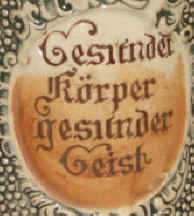 Gesunder
Körper
gesunder
Geist